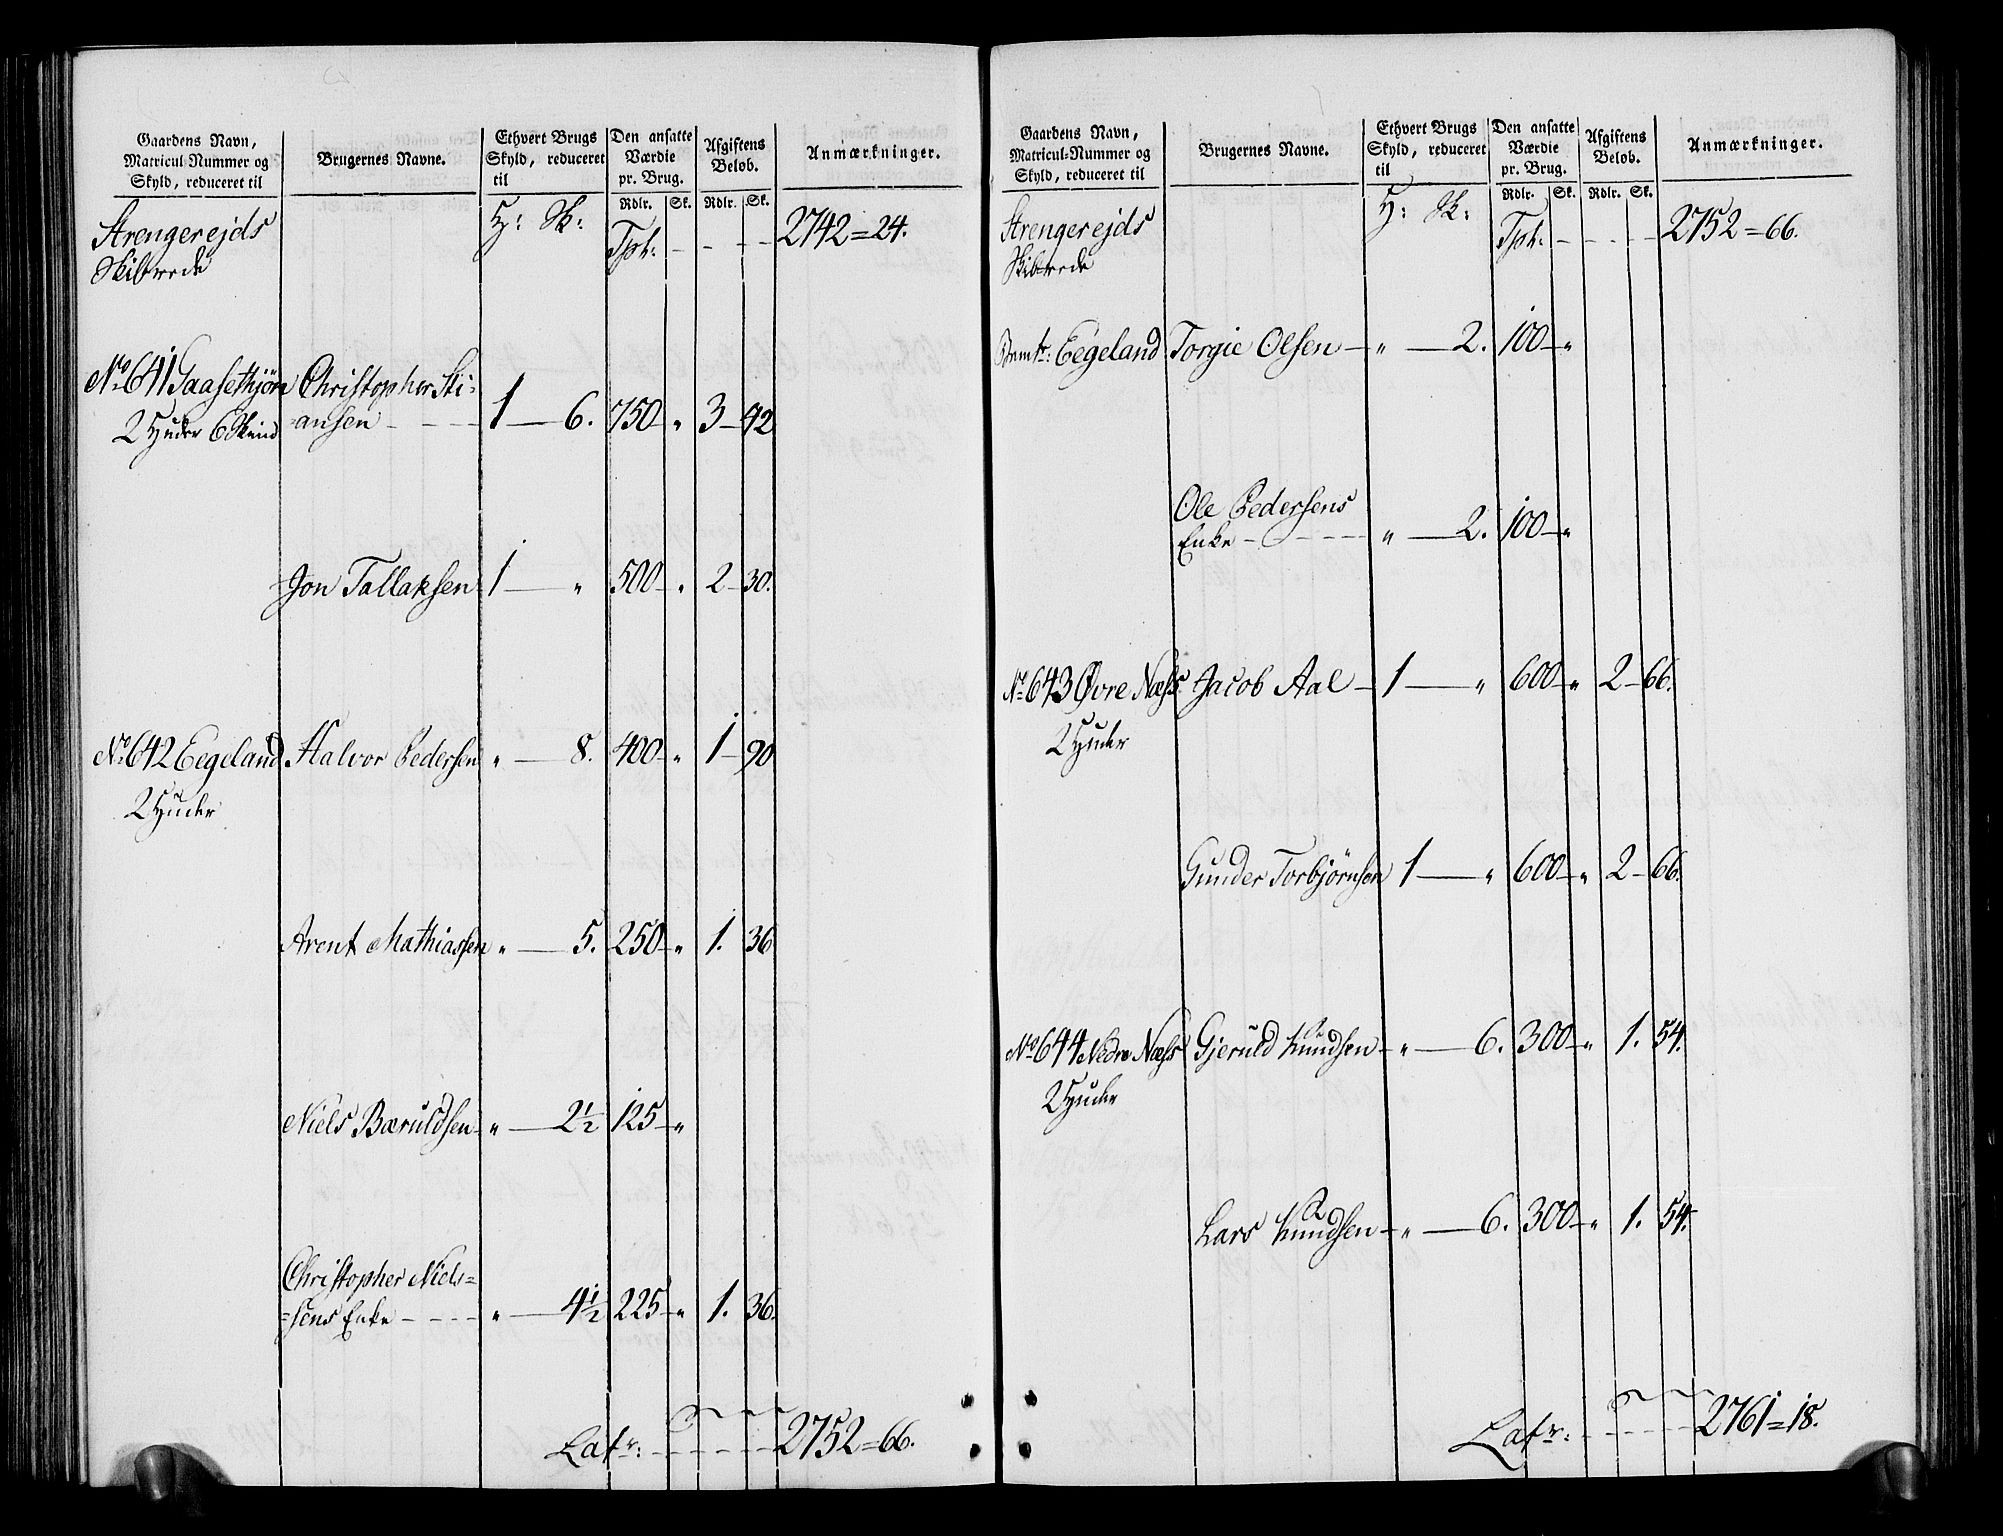 Gaardens Navn, Matricul-Nummer og Skyld, reduceret til | Brugernes Navne. | Ethvert Brugs Skyld, reduceret til | Den ansatte Værdie pr. Brug. | Afgiftens Beløb. | Anmærkninger.
H: Sk: | Rdlr. Sk. | Rdlr. Sk.
Strengereids Tpt: - - - - 2742=24.
Skibrede
No 641 Saasethjørn Christopher Sti=
2 Huder 6 Skind =ansen - - - 1 — 6. 750 — „ 3 — 42
Jon Tallaksen 1 — „ 500 — „ 2 — 30.
No 642 Eegeland Halvor Pedersen „ — 8. 400 — „ 1 — 90
2 Huder
Arent Mathiassen „ — 5. 250 — „ 1. 36
Niels Bæruldsen „ — 2½ 125 — „
Christopher Niel=
=sens Enke - - - - „ — 4½ 225 — „ 1. 36.
Latr: - - - - - 2752=66.
Gaardens Navn, Matricul-Nummer og Skyld, reduceret til | Brugernes Navne. | Ethvert Brugs Skyld, reduceret til | Den ansatte Værdie pr. Brug. | Afgiftens Beløb. | Anmærkninger.
H: Sk: | Rdlr. Sk. | Rdlr. Sk.
Strengereids Tpt: - - - - 2752=66.
Skibrede
Eegeland Torgie Olsen — „ — 2. 100 — „
Ole Pedersens
Enke - - - - „ — 2. 100 — „
No 643 Øvre Næss Jacob Aal — 1 — „ 600 — „ 2 — 66.
2 Huder
Gunder Torbjørnsen 1 — „ 600 — „ 2 — 66.
No 644 Nedre Næss Gjeruld Knudsen — „ — 6. 300 — „ 1. 54.
2 Huder
Lars Knudsen — „ — 6. 300 — „ 1. 54.
Latr: - - - - - 2761=18.